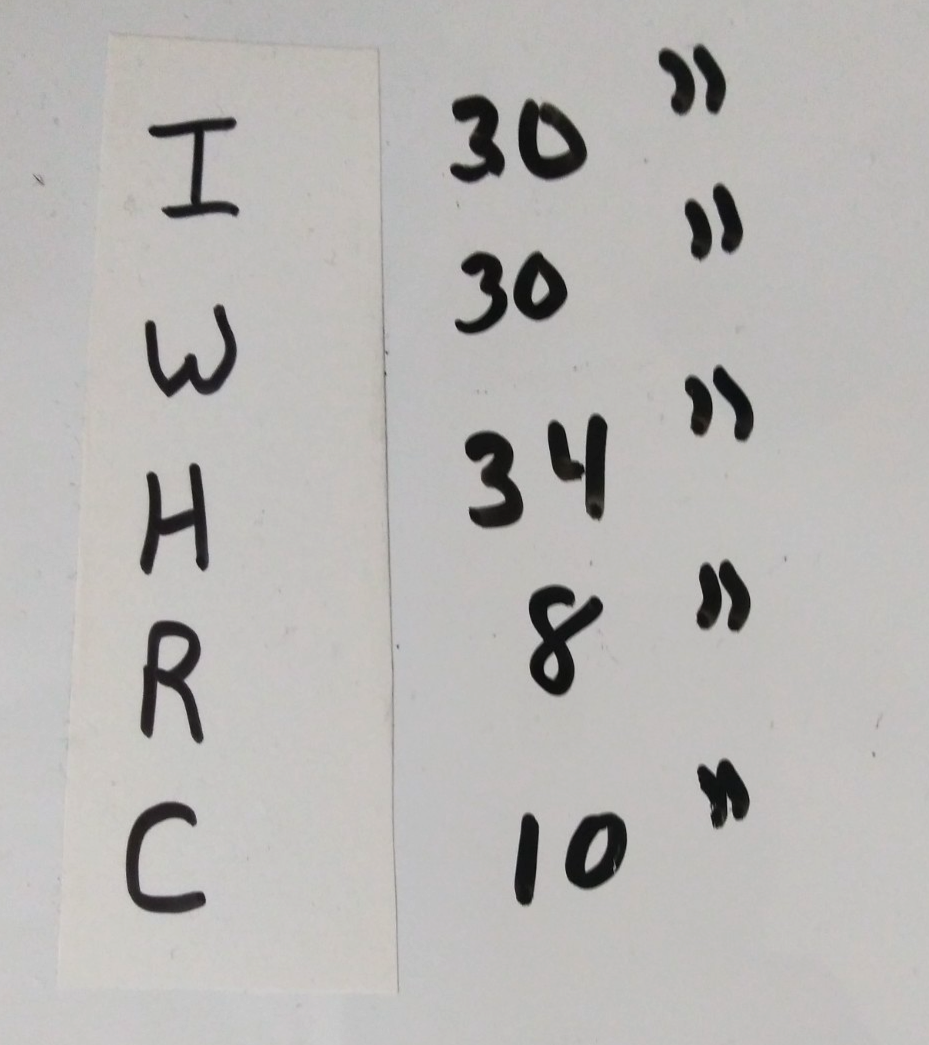 I 30 "
W 30 "
H 34 "
R 8 "
C 10 "